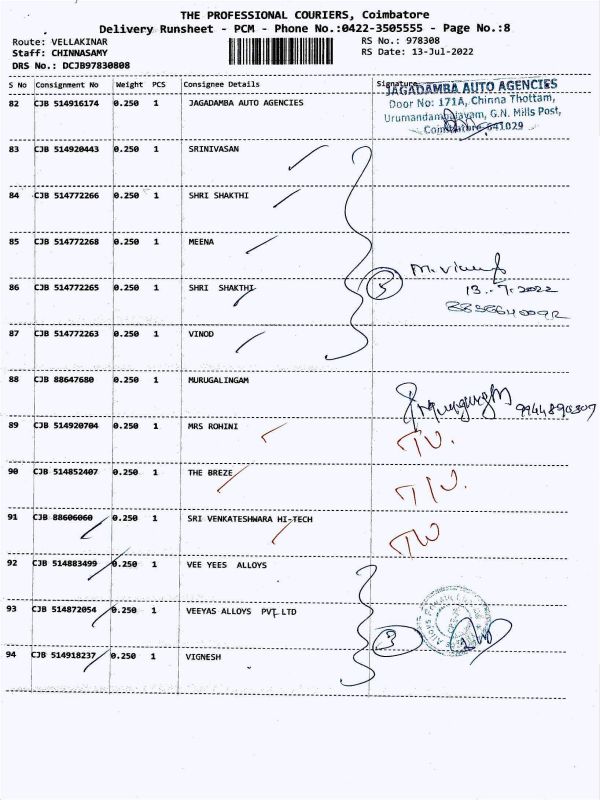 THE PROFESSIONAL COURIERS, Coimbatore
Delivery Runsheet - PCM - Phone No.:0422-3505555 - Page No.:8
Route: VELLAKINAR
Staff: CHINNASAMY
DRS No.: DCJB97830808
RS No.: 978308
RS Date: 13-Jul-2022
S No Consignment No Weight PCS Consignee Details Signature
82 CJB 514916174 0.250 1 JAGADAMBA AUTO AGENCIES
JAGADAMBA AUTO AGENCIES
Door No: 171A, Chinna Thottam,
Urumandampalayam, G.N. Mills Post,
Coimbatore 641029
83 CJB 514920443 0.250 1 SRINIVASAN
84 CJB 514772266 0.250 1 SHRI SHAKTHI
85 CJB 514772268 0.250 1 MEENA
86 CJB 514772265 0.250 1 SHRI SHAKTHI
5
13.7.2022
87 CJB 514772263 0.250 1 VINOD
88 CJB 88647680 0.250 1 MURUGALINGAM
89 CJB 514920704 0.250 1 MRS ROHINI
90 CJB 514852407 0.250 1 THE BREZE
91 CJB 88606060 0.250 1 SRI VENKATESHWARA HI-TECH
92 CJB 514883499 0.250 1 VEE YEES ALLOYS
93 CJB 514872054 0.250 1 VEEYAS ALLOYS PVT LTD
3
94 CJB 514918237 0.250 1 VIGNESH